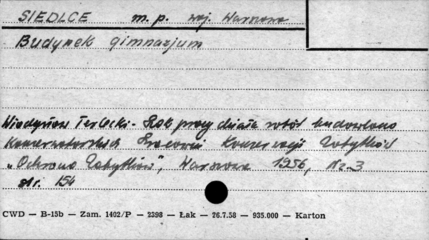 SIEDLCE m.p. woj. Warszawa
Budynek gimnazjum
Władysław Terlecki - Rok pracy działu robót budowlano
Konserwatorskich Pracowni Konserwacji Zabytków
"Ochrona Zabytków", Warszawa 1956, Nr. 3
str. 154
CWD — B-15b — Zam. 1402/P — 2398 — Łak — 26.7.58 — 935.000 — Karton